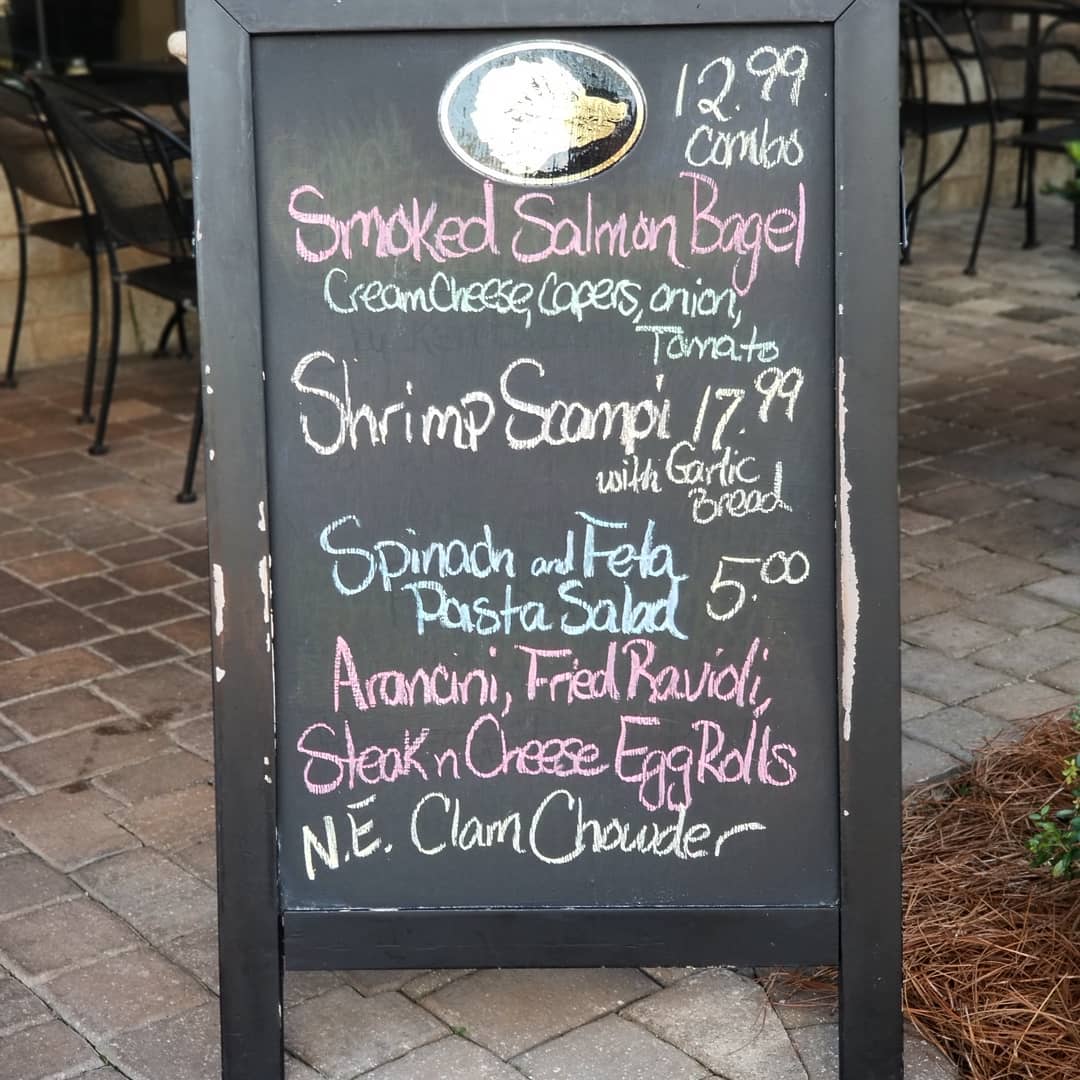 12.99
combo
Smoked Salmon Bagel
Cream Cheese, Capers, onion,
Tomato
Shrimp Scampi 17.99
with Garlic
Bread
Spinach and Feta
Pasta Salad 5.00
Arancini, Fried Ravioli,
Steak n Cheese Egg Rolls
N.E. Clam Chowder